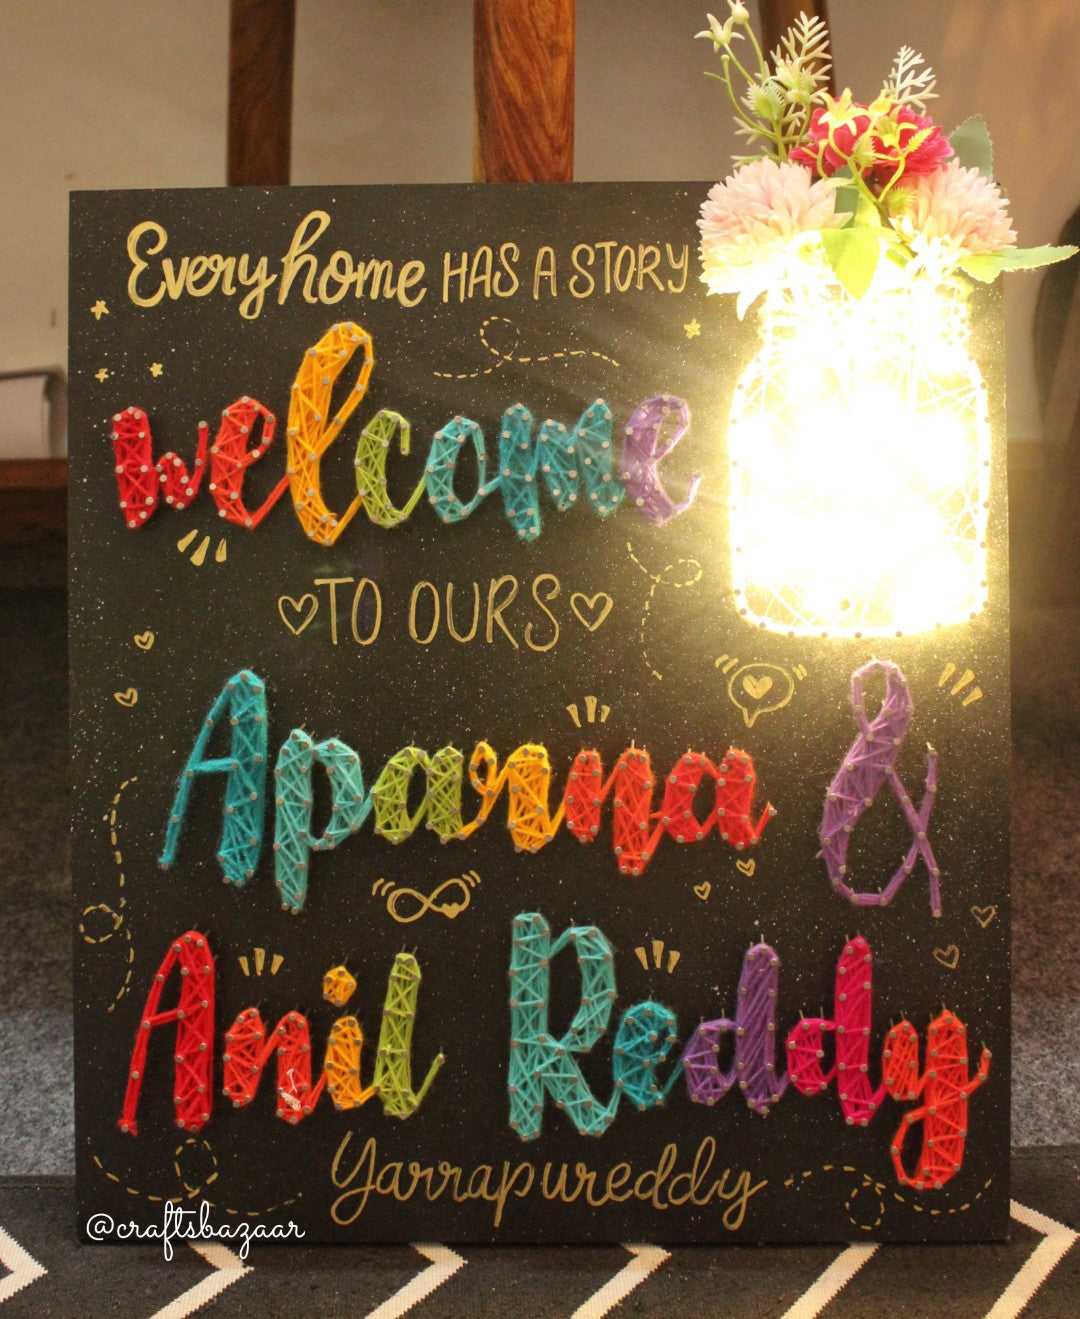 Every home HAS A STORY
welcome
TO OURS
Aparna &
Anil Reddy
Yarrapureddy
@craftsbazaar